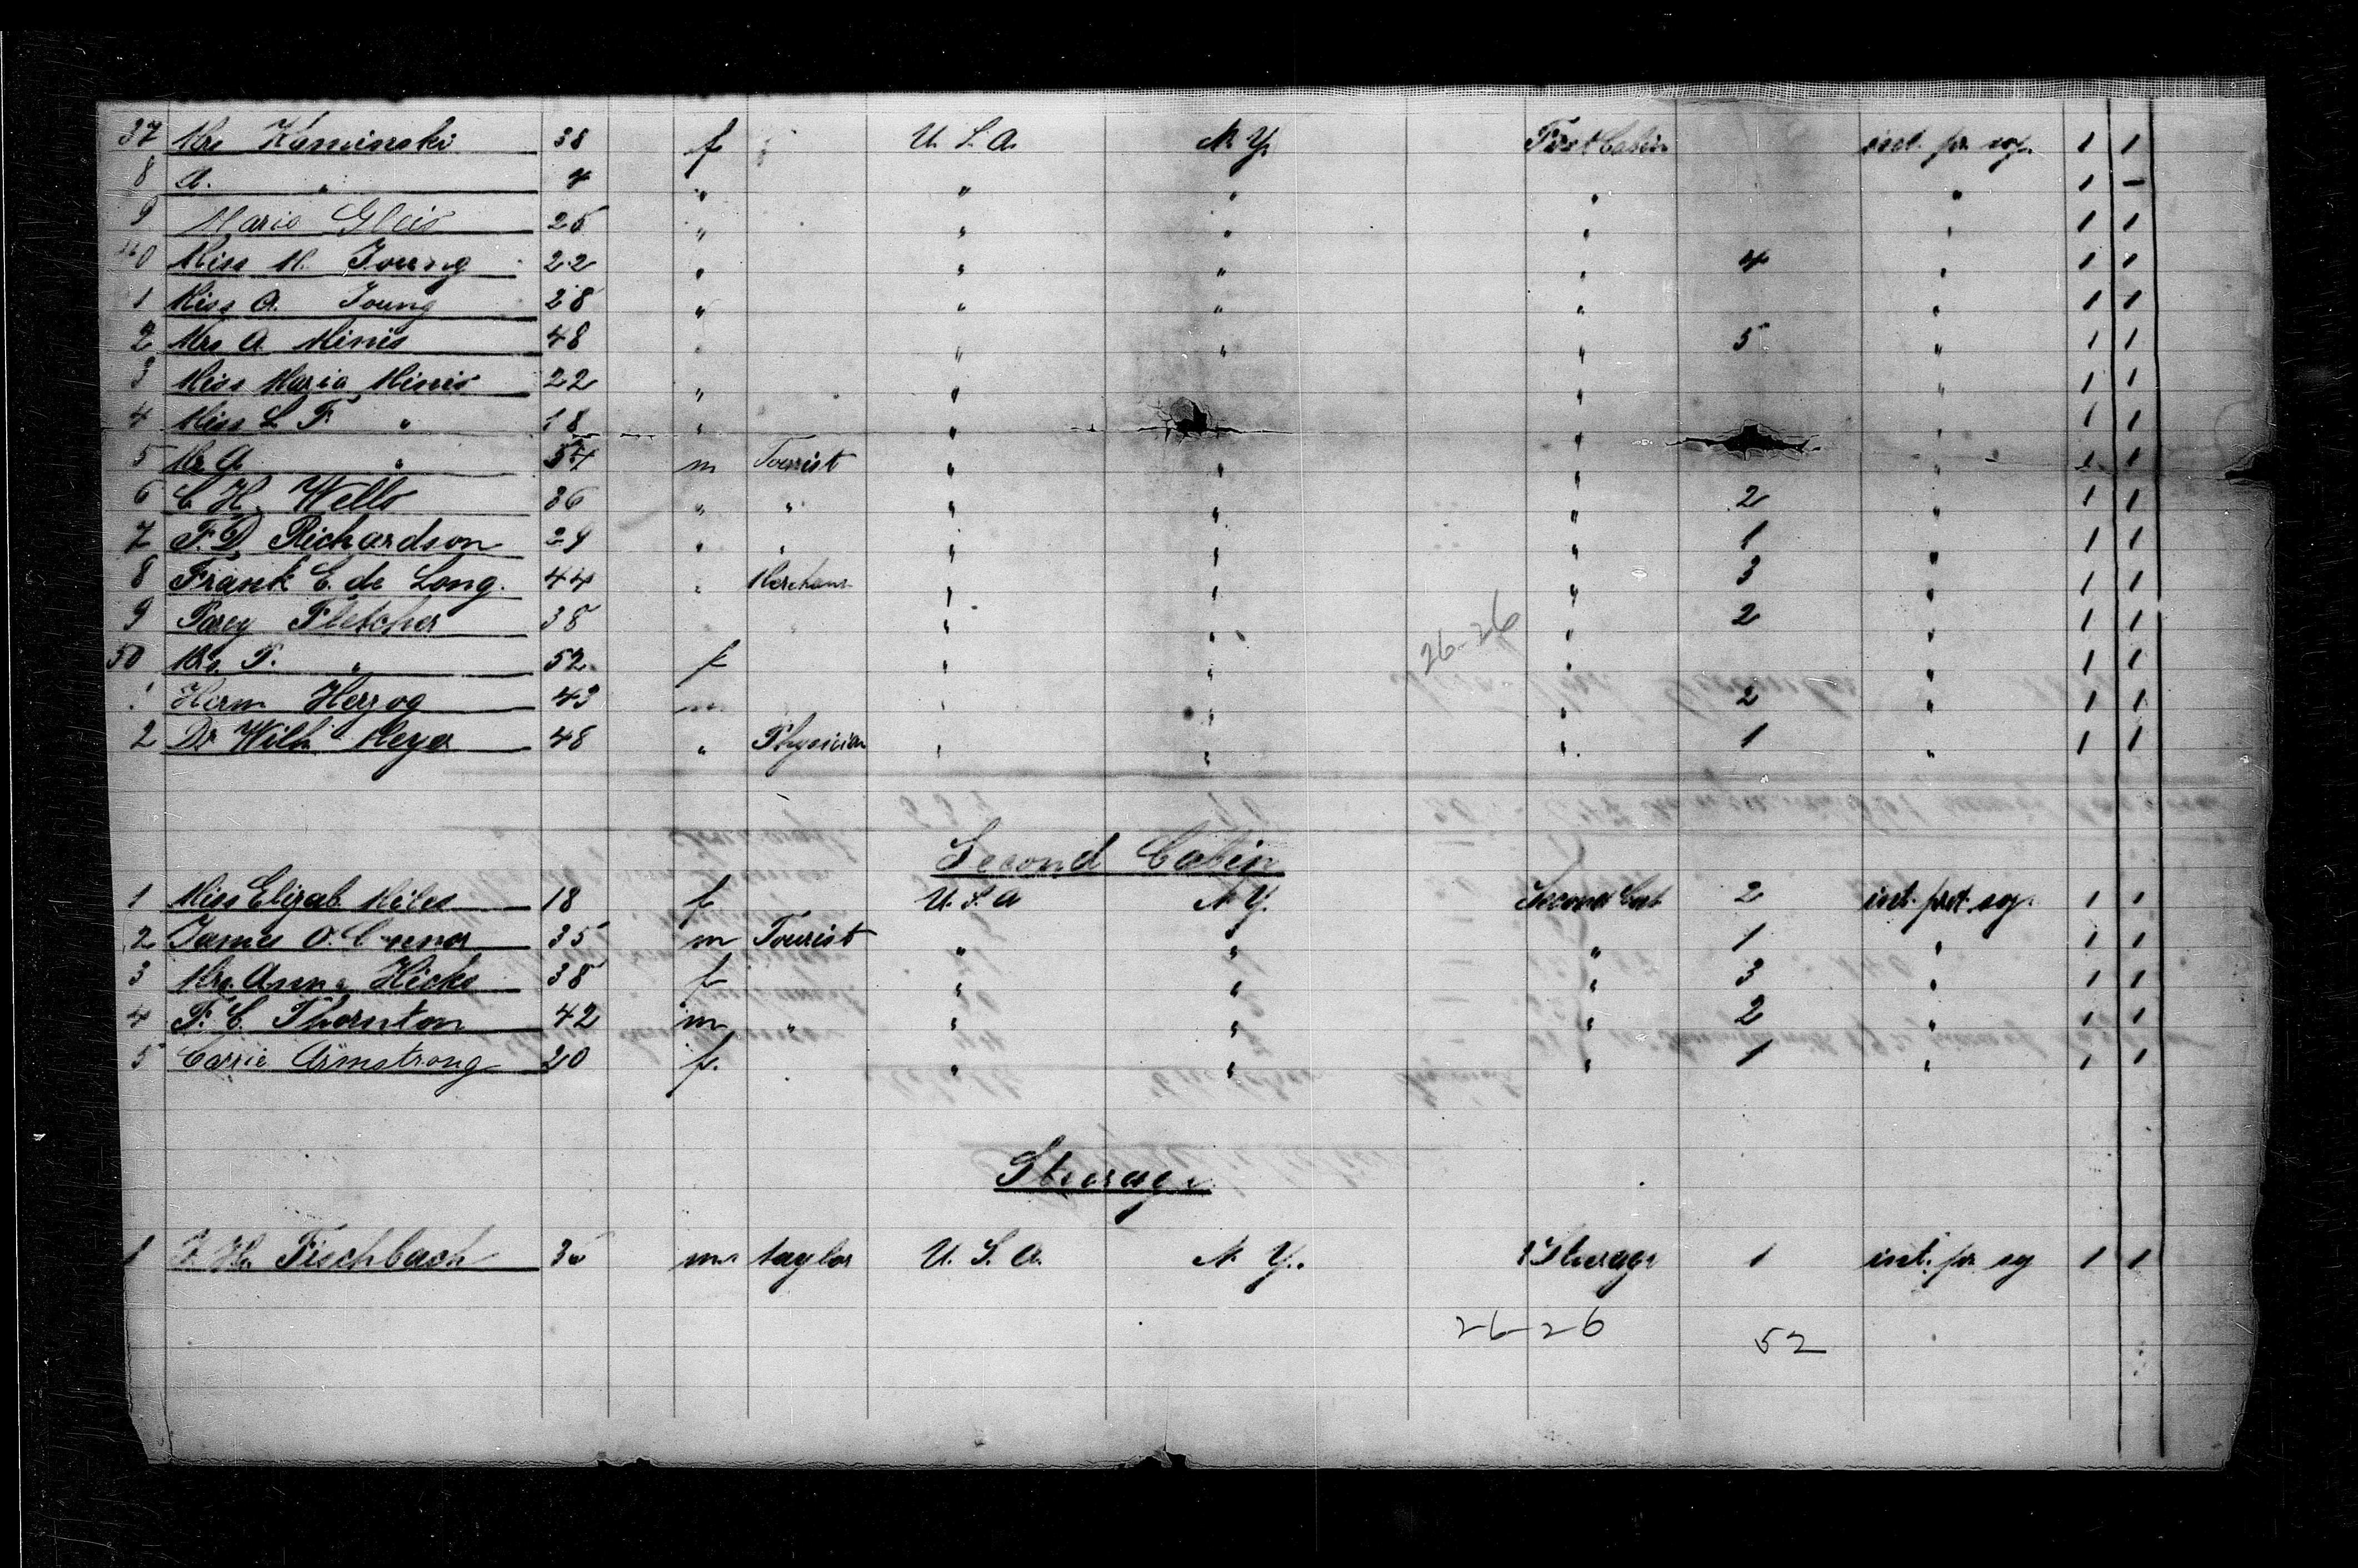 37 Mrs Kaminski 38 f U. S. A. N. Y. First Cabin inst. pr. soj. 1 1
8 A. " 4 " " " " " 1 –
9 Marie Gleis 25 " " " " " 1 1
40 Miss M. Young 22 " " " " 4 " 1 1
1 Miss A. Young 28 " " " " " 1 1
2 Mrs A Minis 48 " " " " 5 " 1 1
3 Miss Maria Minis 22 " " " " 1 1
4 Miss L F " 18 " " " " 1 1
5 Mr A " 54 m Tourist " " " " 1 1
6 C H. Wells 36 " " " " " 2 " 1 1
7 F. D. Richardson 29 " " " " " 1 " 1 1
8 Frank E. de Long. 44 " Merchant " " " 3 " 1 1
9 Parey Fletcher 38 " " " 2 " 1 1
26-26
50 Mrs. P. " 52 f " " " " 1 1
1 Herm Herzog 43 m " " " 2 " 1 1
2 Dr Wilh Meyer 48 " Physician " " " 1 " 1 1
Second Cabin
1 Miss Elizab. Miles 18 f U. S. A N. Y. Second Cab 2 inst. prot. soj. 1 1
2 James O. Connor 35 m Tourist " " " 1 " 1 1
3 Mrs. Anna Hicks 38 f " " " 3 " 1 1
4 F. C. Thornton 42 m " " " " 2 " 1 1
5 Carrie Armstrong 20 f. " " " 1 " 1 1
Steerage
1 H. Fischbach m taylor U. S. A. N. Y. Steerage 1 inst. pr soj 1 1
26-26
52